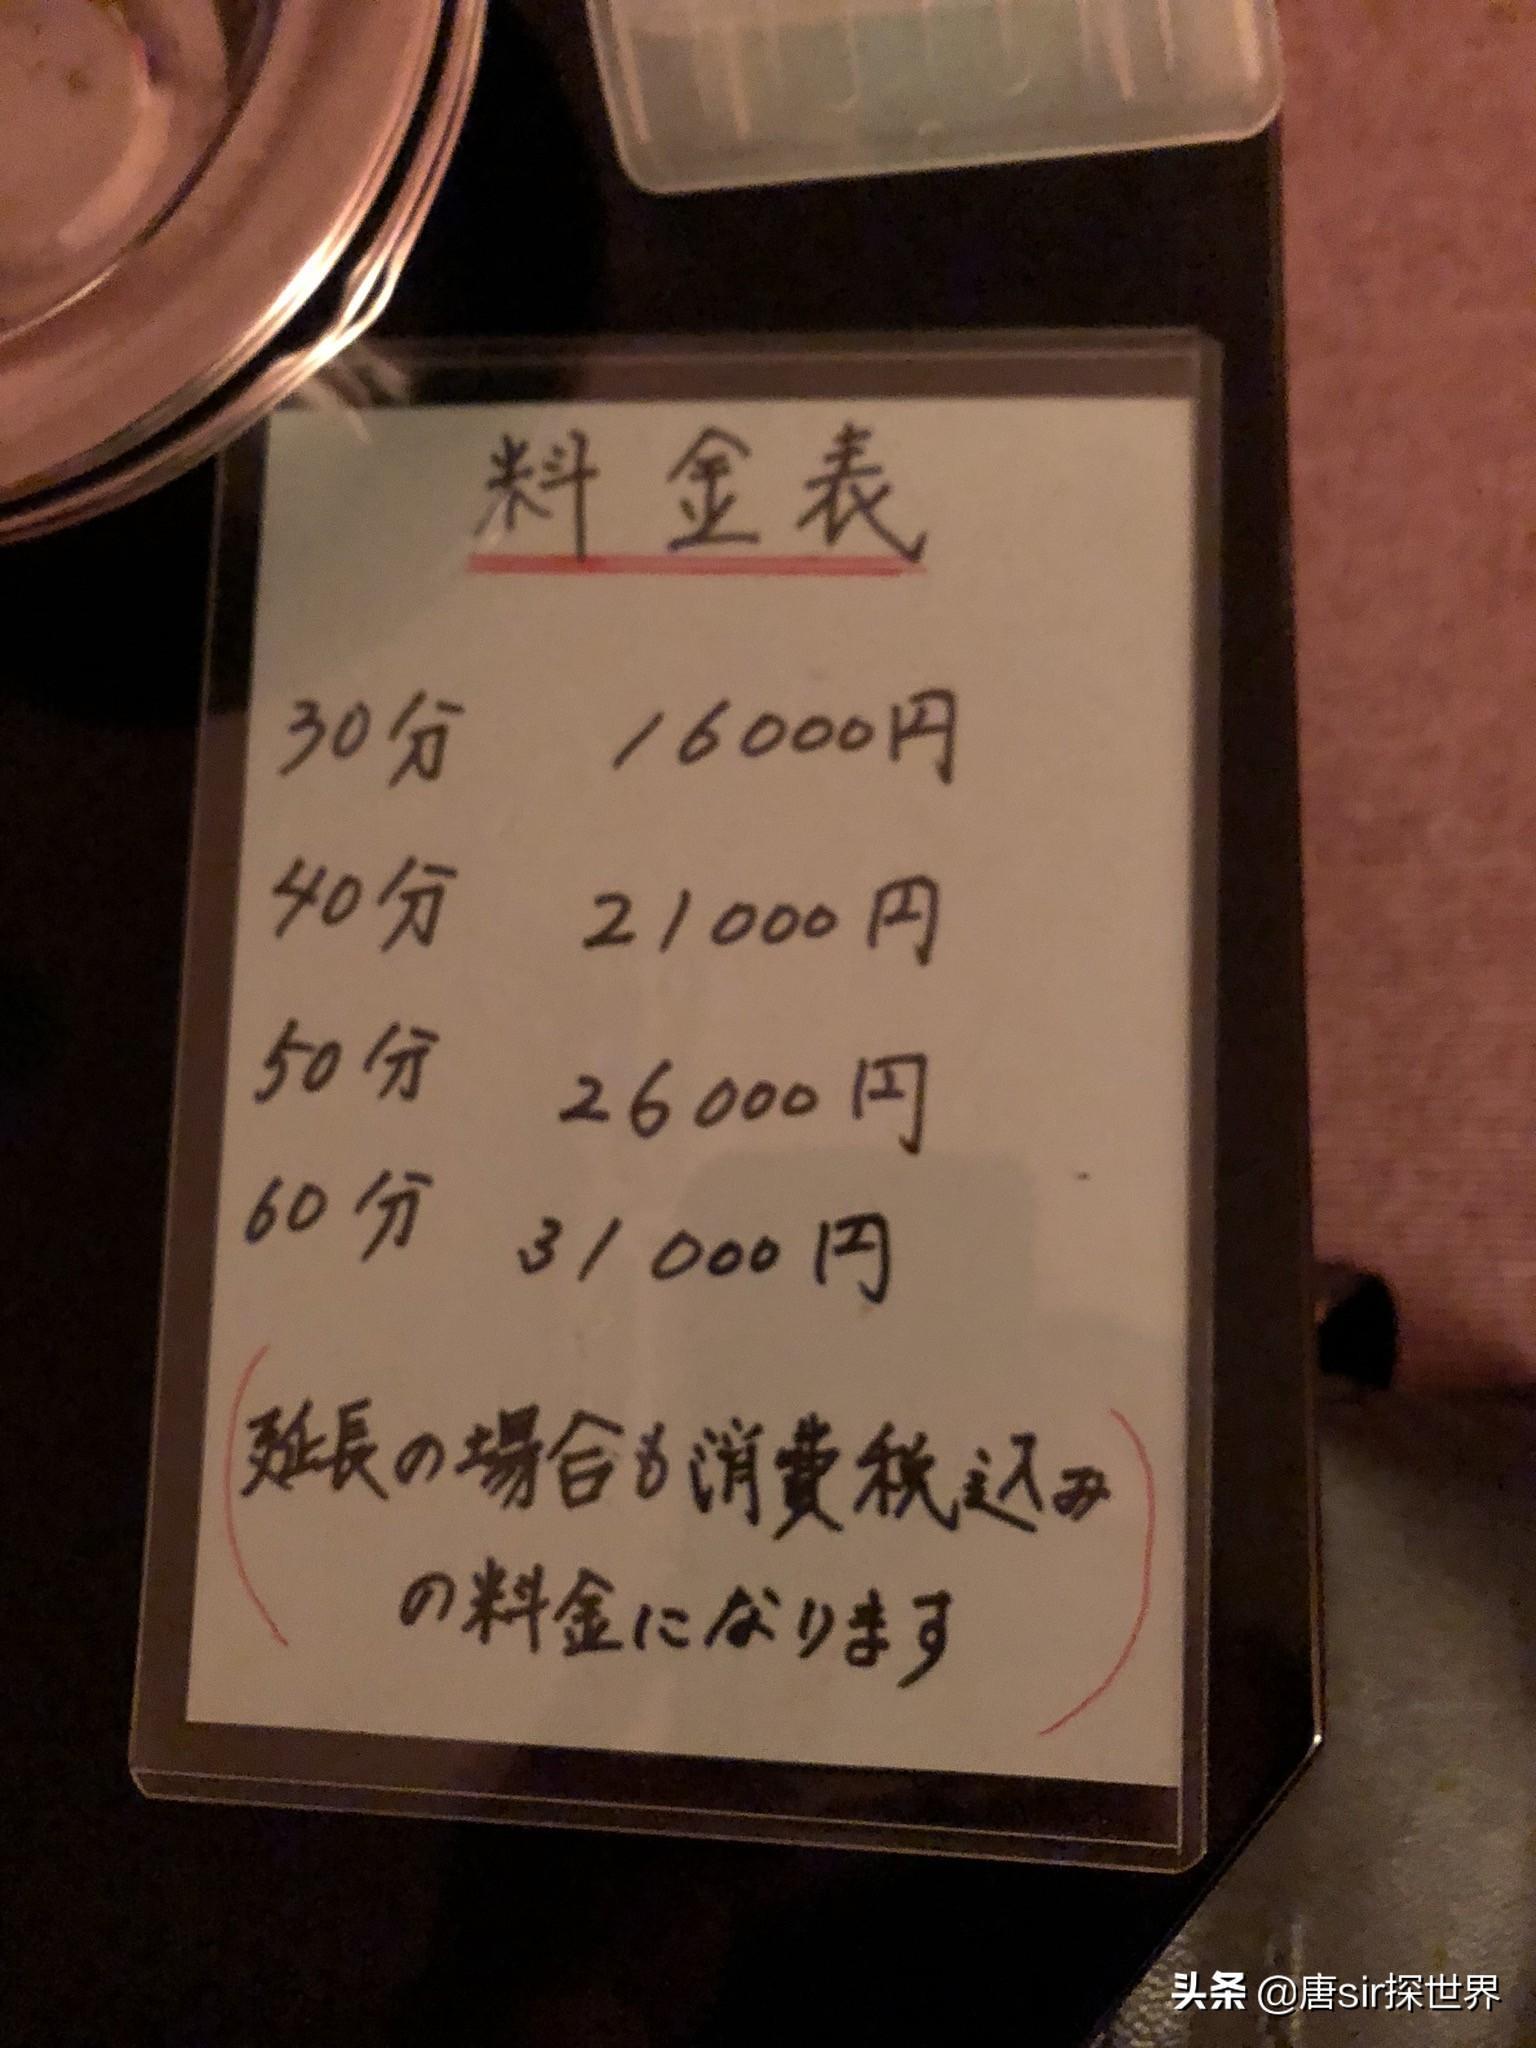 料金表
30分 16000円
40分 21000円
50分 26000円
60分 31000円
(延長の場合も消費税込み
の料金になります)
头条 @唐sir探世界